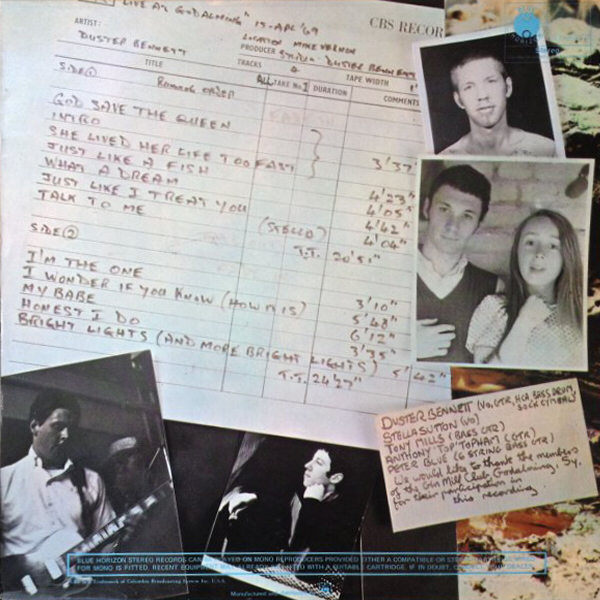 "LIVE AT GODALMING" 15-APR '69
CBS RECOR
ARTIST:
DUSTER BENNETT
LOCATION MIKE VERNON
PRODUCER STUDIO- DUSTER BENNETT
SIDE ①
TITLE
TRACKS 4
TAPE WIDTH 1"
RUNNING ORDER
ALL TAKE No. 1
DURATION
COMMENTS
GOD SAVE THE QUEEN
INTRO
SHE LIVED HER LIFE TOO FAST 3'37"
JUST LIKE A FISH 4'23"
WHAT A DREAM 4'05"
JUST LIKE I TREAT YOU 4'42"
TALK TO ME (STELLA) 4'04"
T.T. 20'51"
SIDE ②
I'M THE ONE 3'10"
I WONDER IF YOU KNOW (HOW IT IS) 5'48"
MY BABE 6'12"
HONEST I DO 3'35"
BRIGHT LIGHTS (AND MORE BRIGHT LIGHTS) 5'42"
T.T. 24'27"
DUSTER BENNETT (VO, GTR, HCA, BASS DRUM, SOCK CYMBALS)
STELLA SUTTON (VO)
TONY MILLS (BASS GTR)
ANTHONY 'TOP' TOPHAM (GTR)
PETER BLUE (6 STRING BASS GTR)
We would like to thank the members
of the Gin Mill Club, Godalming, Sy.
for their participation in
this recording.
BLUE HORIZON STEREO RECORDS CAN PLAYED ON MONO REPRODUCERS PROVIDED EITHER A COMPATIBLE OR STEREO
FOR MONO IS FITTED. RECENT EQUIPMENT MAY ALREADY BE FITTED WITH A SUITABLE CARTRIDGE. IF IN DOUBT, CONSULT YOUR DEALER.
Trademark of Columbia Broadcasting System Inc. U.S.A.
Manufactured and